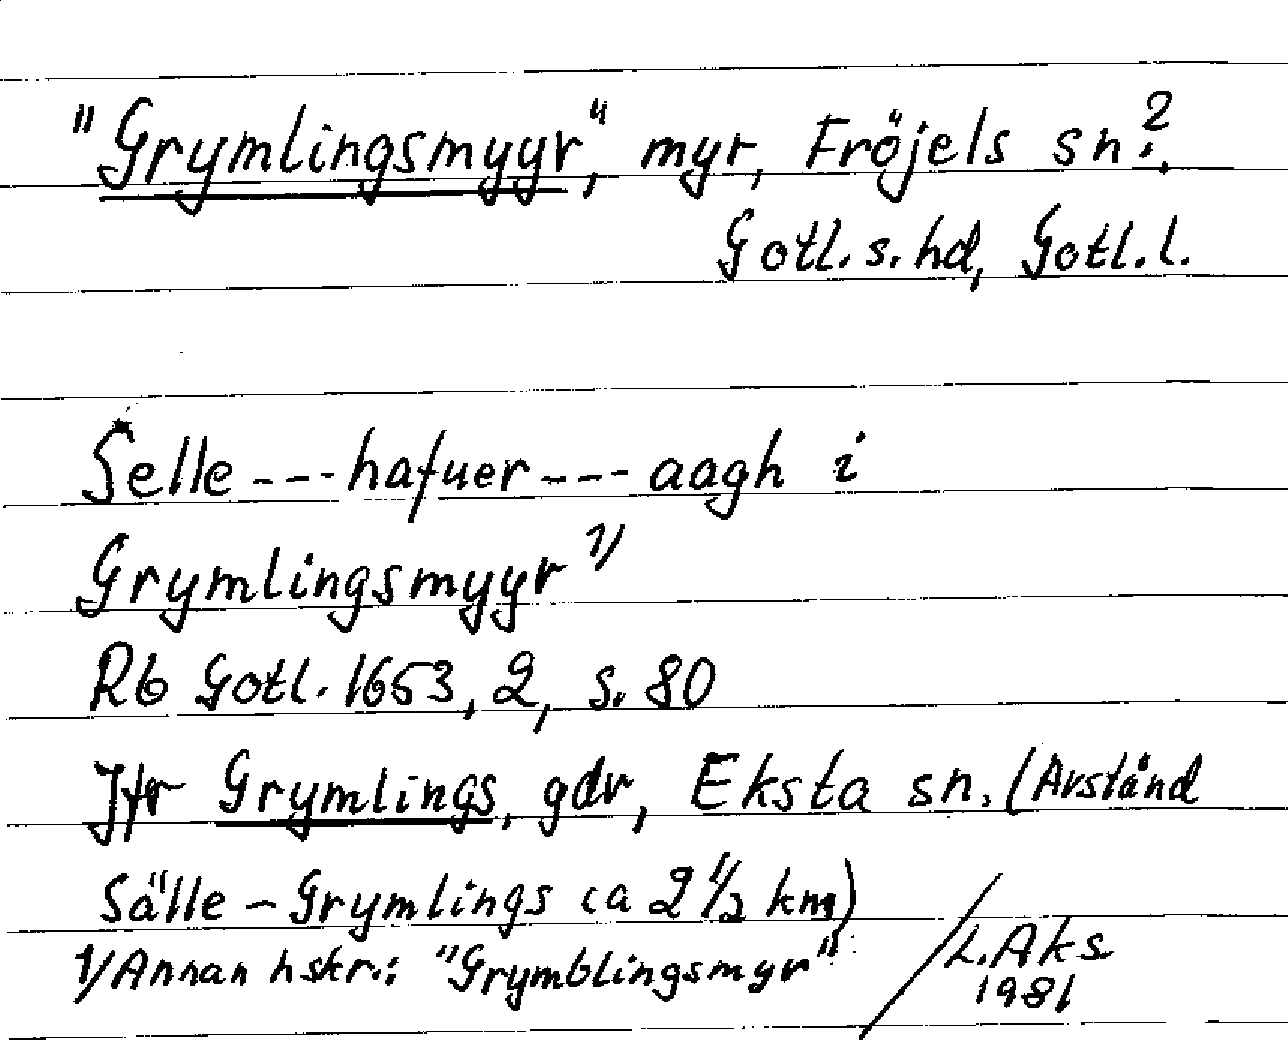 "Grymlingsmyyr", myr, Fröjels sn?.
Gotl. s. hd, Gotl. l.
Selle --- hafuer --- aagh i
Grymlingsmyyr 1)
Rb Gotl. 1653, 2, s. 80
Jfr Grymlings, gdr, Eksta sn. (Avstånd
Sälle - Grymlings ca 2 1/2 km)
1) Annan hskr.: "Grymblingsmyr"
L. Aks
1981